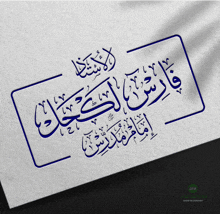 الأستاذ
فارس لكحل
إمام مدرس